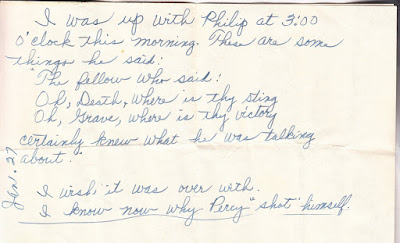 I was up with Philip at 3:00
o'clock this morning. These are some
things he said:
"The fellow who said:
Oh, Death, where is thy sting
Oh, Grave, where is thy victory
certainly knew what he was talking
about."
I wish it was over with.
I know now why Percy "shot" himself.
Jan. 27